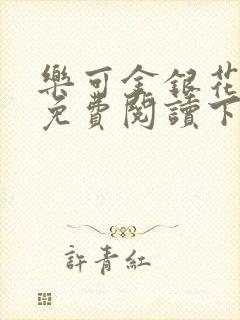 樂可金銀花
免費閱讀下
許青紅